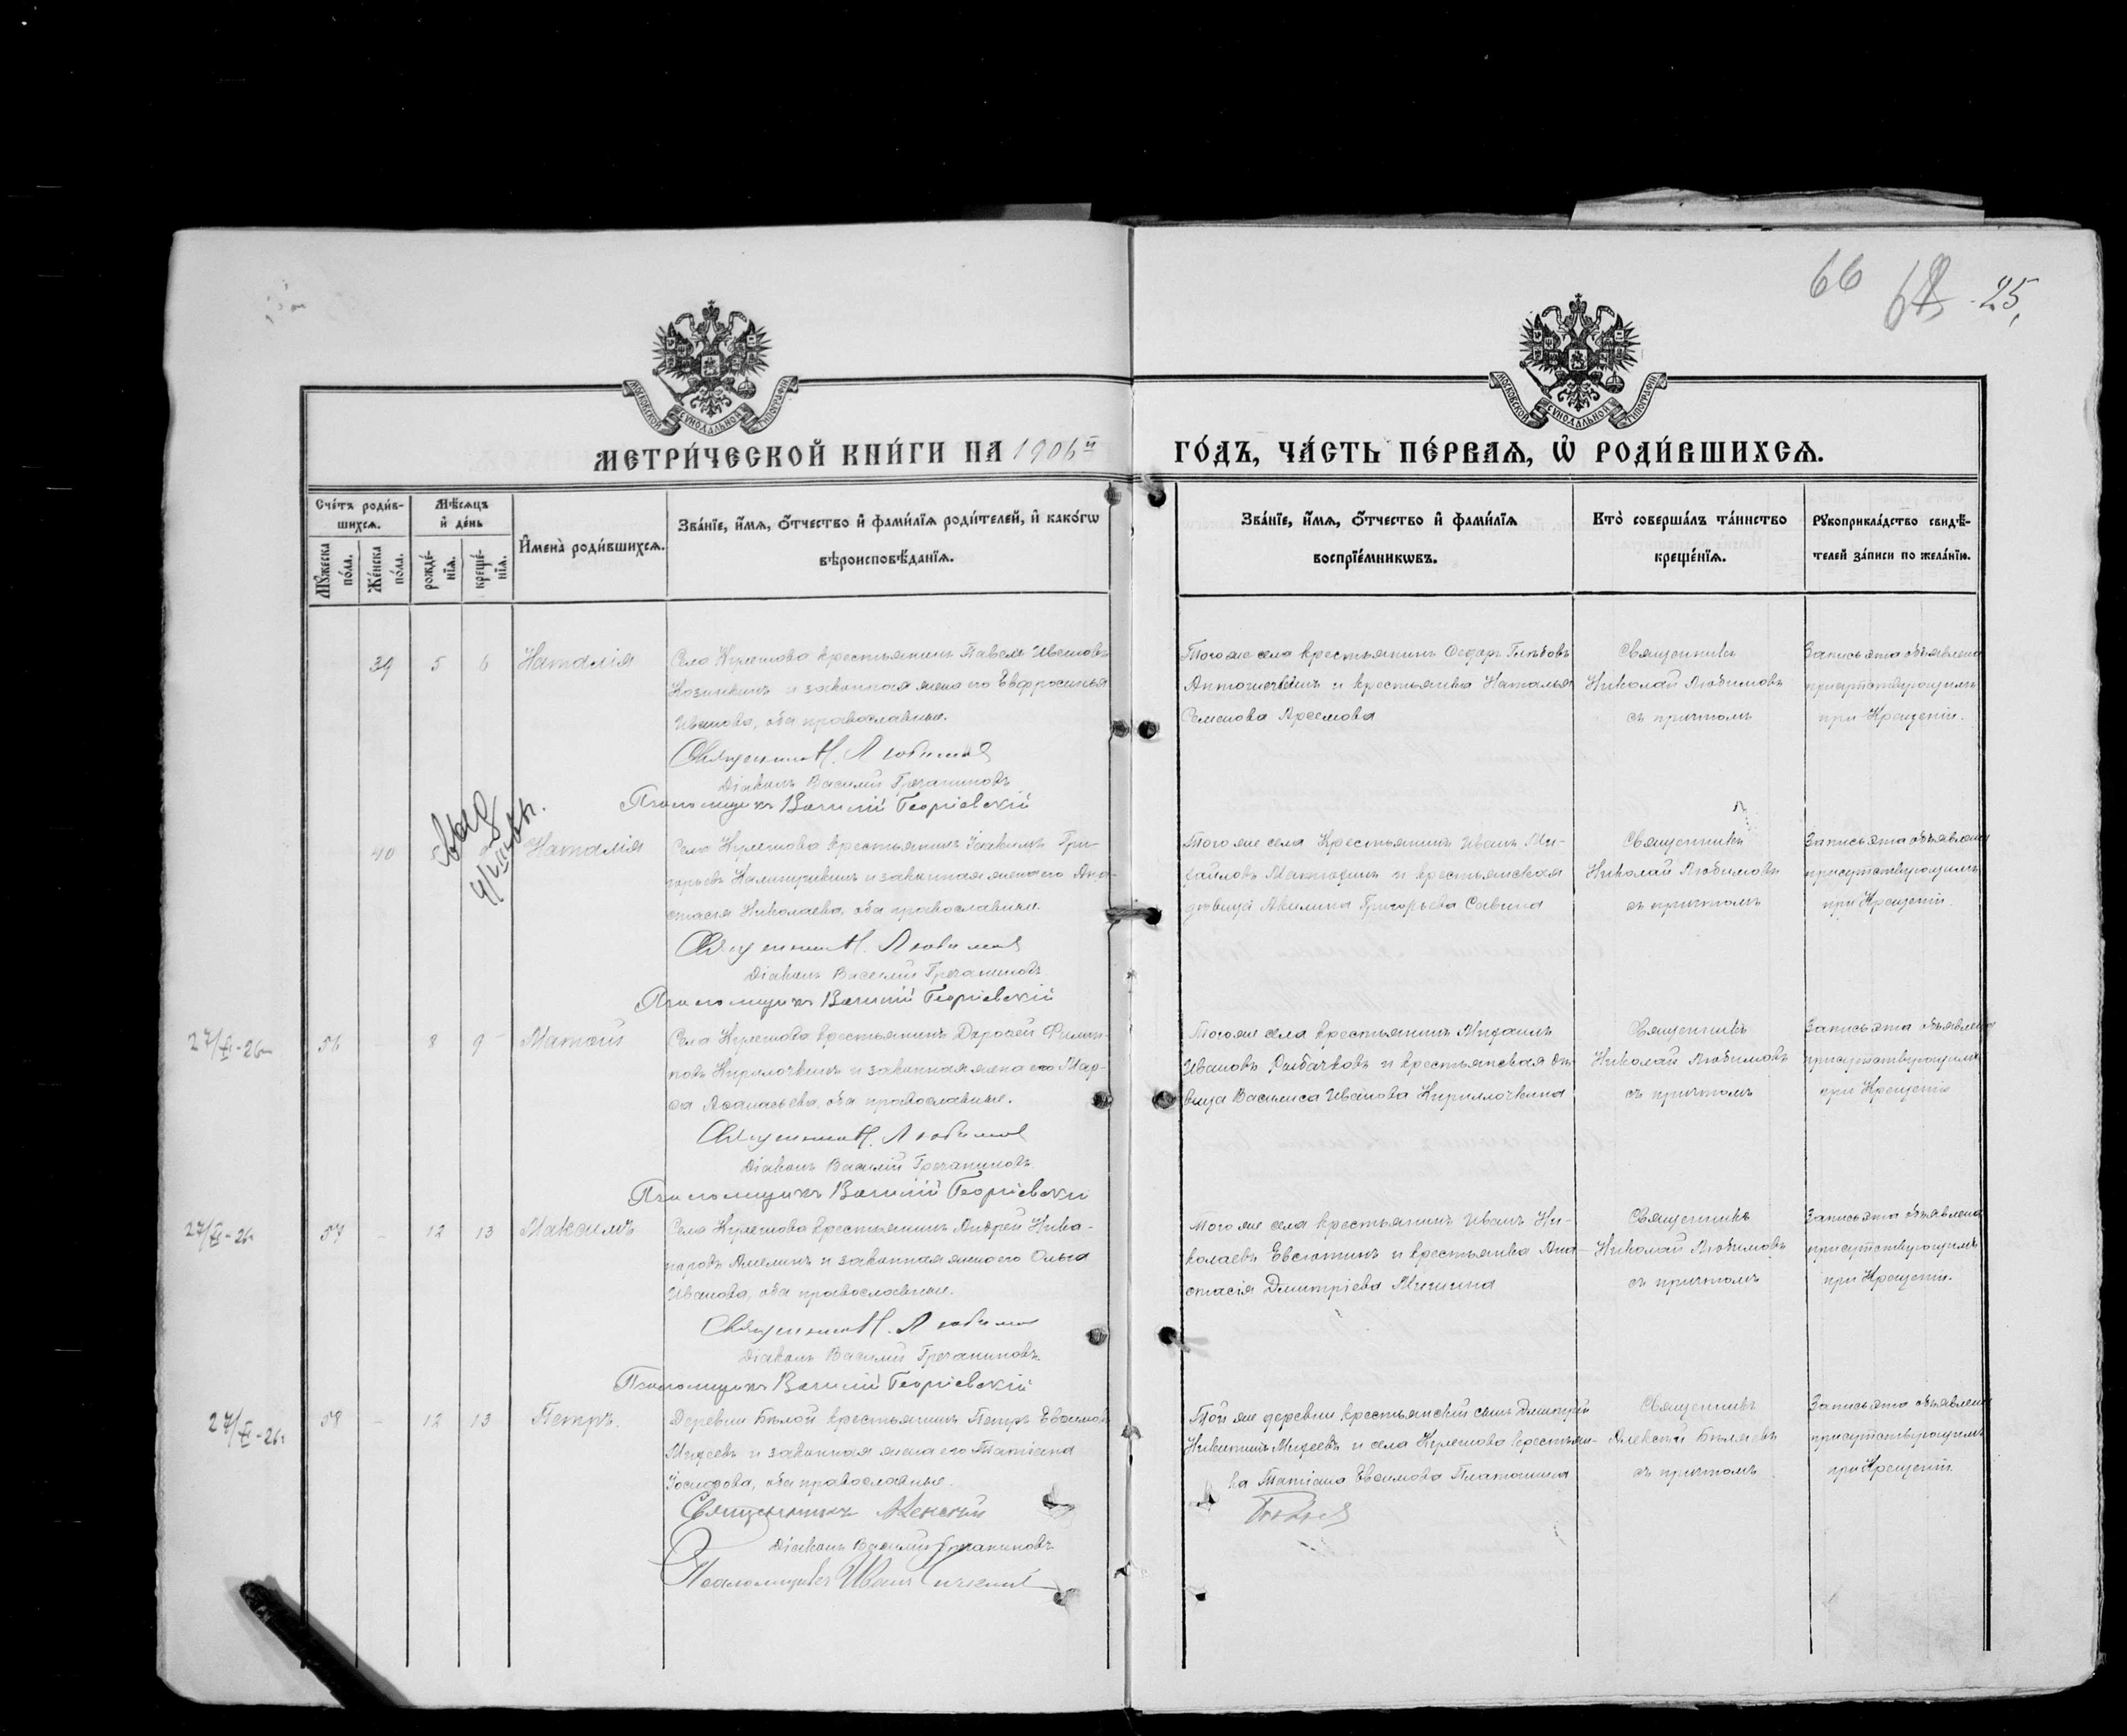 66 25
МОСКОВСКОЙ СѴНОДАЛЬНОЙ ТИПОГРАФІИ
МОСКОВСКОЙ СѴНОДАЛЬНОЙ ТИПОГРАФІИ
МЕТРИ́ЧЕСКОЙ КНИ́ГИ НА 1906й
ГО́ДЪ, ЧА́СТЬ ПЕ́РВАѦ, Ѡ҆ РОДИ́ВШИХСѦ.
Сче́тъ роди́в-
шихсѧ.
Мꙋ́жеска по́ла.
Же́нска по́ла.
Мѣ́сѧцъ
и҆ де́нь
рожде́-
нїѧ.
креще́-
нїѧ.
И҆мена̀ роди́вшихсѧ.
Зва́нїе, и҆́мѧ, ѻ҆́тчество и҆ фами́лїѧ роди́телей, и҆ како́гѡ
вѣроисповѣ́данїѧ.
Зва́нїе, и҆́мѧ, ѻ҆́тчество и҆ фами́лїѧ
воспрїе́мникѡвъ.
Кто̀ соверша́лъ та́инство
креще́нїѧ.
Рꙋкоприкла́дство свидѣ́-
телей за́писи по жела́нїю.
39 5 6 Наталія
Села Кулешова крестьянинъ Павелъ Ивановъ
и законная жена его Евфросинья
Иванова, оба православные.
Священникъ Н. Любимовъ
Діаконъ Василій Гречаниновъ
Псаломщикъ Василій Георгіевскій
Того же села крестьянинъ Ѳедоръ Глѣбовъ
и крестьянка Наталья
Семенова
Священникъ
Николай Любимовъ
съ причтомъ
Запись эта объявлена
присутствующимъ
при Крещеніи.
40 Наталія
Села Кулешова крестьянинъ Іоакимъ Гри-
горьевъ и законная жена его Ана-
стасія Николаева, оба православные.
Священникъ Н. Любимовъ
Діаконъ Василій Гречаниновъ
Псаломщикъ Василій Георгіевскій
Того же села Крестьянинъ Иванъ Ми-
хайловъ и крестьянская
дѣвица Акилина Григорьева Савина
Священникъ
Николай Любимовъ
съ причтомъ
Запись эта объявлена
присутствующимъ
при Крещеніи
27/XI-26
56 - 8 9 Матѳій
Села Кулешова крестьянинъ Дороѳей Филип-
повъ Кирилочкинъ и законная жена его Мар-
ѳа Аѳанасьева, оба православные.
Священникъ Н. Любимовъ
Діаконъ Василій Гречаниновъ
Псаломщикъ Василій Георгіевскій
Того же села крестьянинъ Михаилъ
Ивановъ Рыбачковъ и крестьянская дѣ-
вица Василиса Иванова Кирилочкина
Священникъ
Николай Любимовъ
съ причтомъ
Запись эта объявлена
присутствующимъ
при Крещеніи
27/XI-26
57 - 12 13 Максимъ
Села Кулешова крестьянинъ Андрей Ника-
норовъ Амелинъ и законная жена его Ольга
Иванова, оба православные.
Священникъ Н. Любимовъ
Діаконъ Василій Гречаниновъ
Псаломщикъ Василій Георгіевскій
Того же села крестьянинъ Иванъ Ни-
колаевъ Евсютинъ и крестьянка Ана-
стасія Димитріева Мишина
Священникъ
Николай Любимовъ
съ причтомъ
Запись эта объявлена
присутствующимъ
при Крещеніи.
27/XI-26
58 - 12 13 Петръ.
Деревни Бѣлой крестьянинъ Петръ Евѳимовъ
Михеевъ и законная жена его Татіана
Іосифова, оба православные.
Священникъ Алексій
Діаконъ Василій Гречаниновъ
Псаломщикъ Иванъ
Той же деревни крестьянскій сынъ Димитрій
Никитинъ Михеевъ и села Кулешова крестьян-
ка Татіана Евѳимова Платошина
Бѣляевъ
Священникъ
Алексій Бѣляевъ
съ причтомъ
Запись эта объявлена
присутствующимъ
при Крещеніи